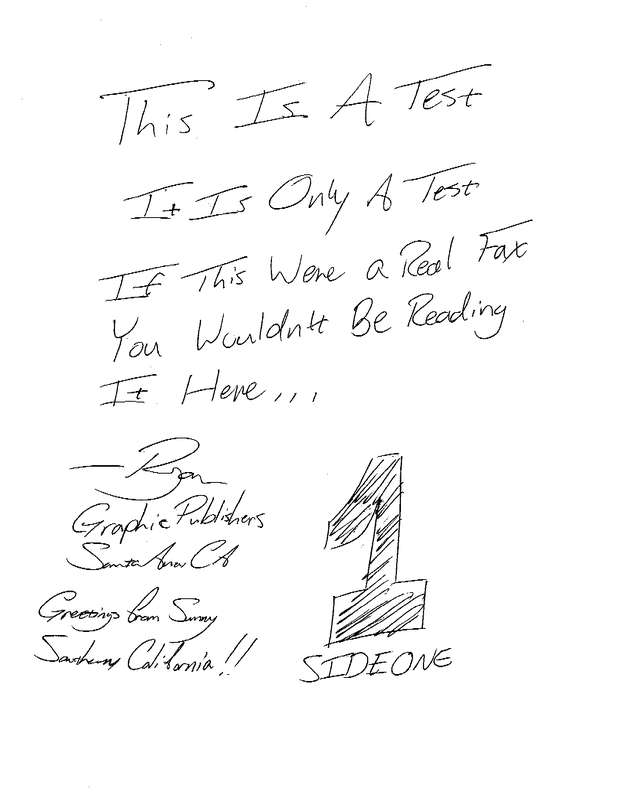 This Is A Test
It Is Only A Test
If This Were a Real Fax
You Wouldn't Be Reading
It Here...
— Ryan
Graphic Publishers
Santa Ana CA
Greetings from Sunny
Southern California!!
1
SIDE ONE